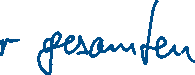 r gesamten